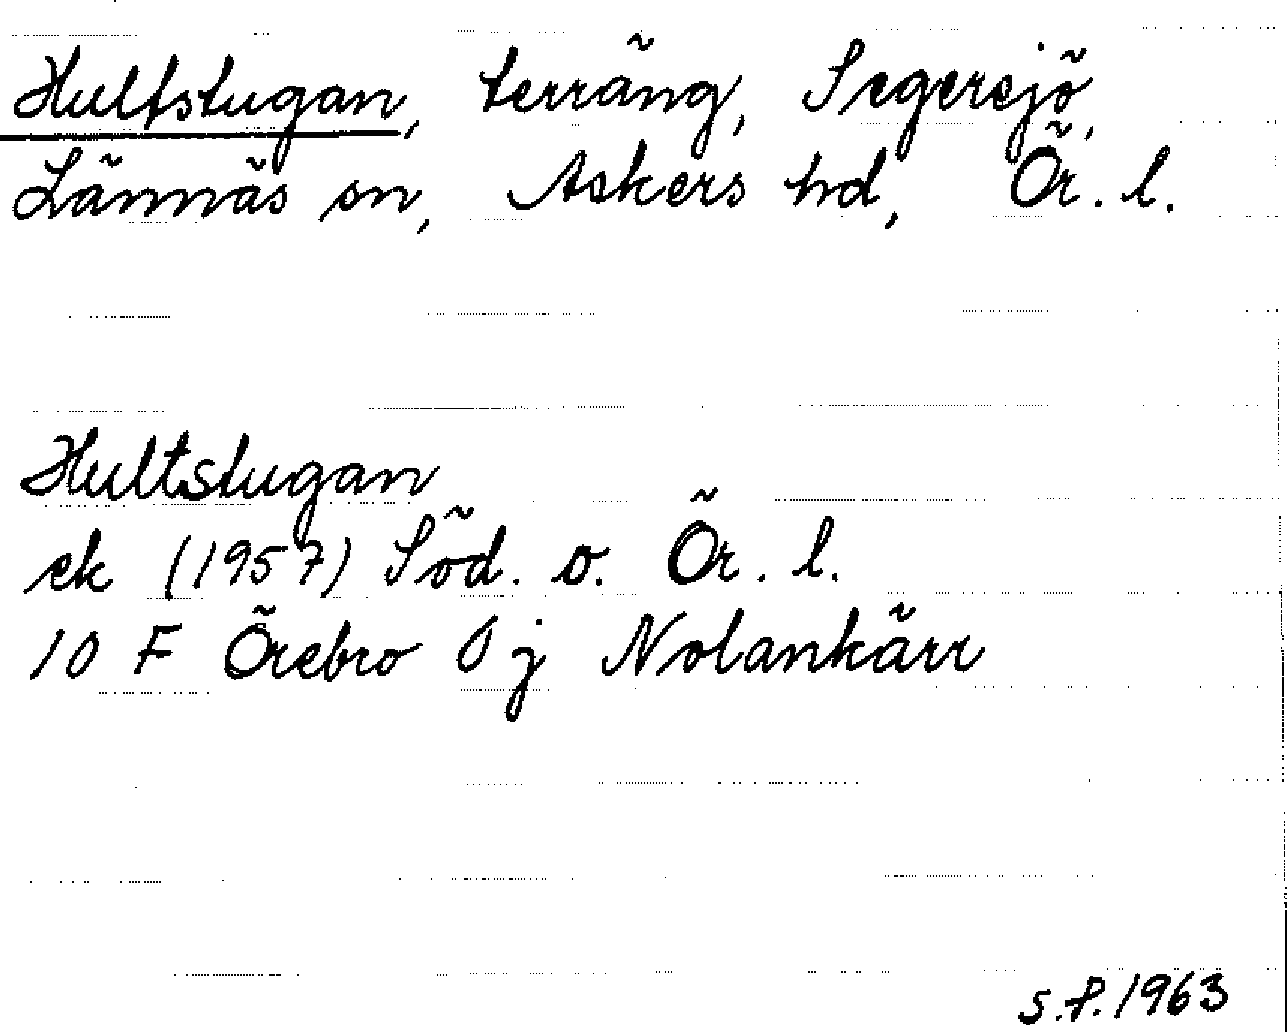 Hultstugan, terräng, Segersjö,
Lännäs sn, Askers hd, Ör. l.
Hultstugan
ek (1957) Söd. o. Ör. l.
10 F Örebro 0 j Nolankärr
S.P. 1963